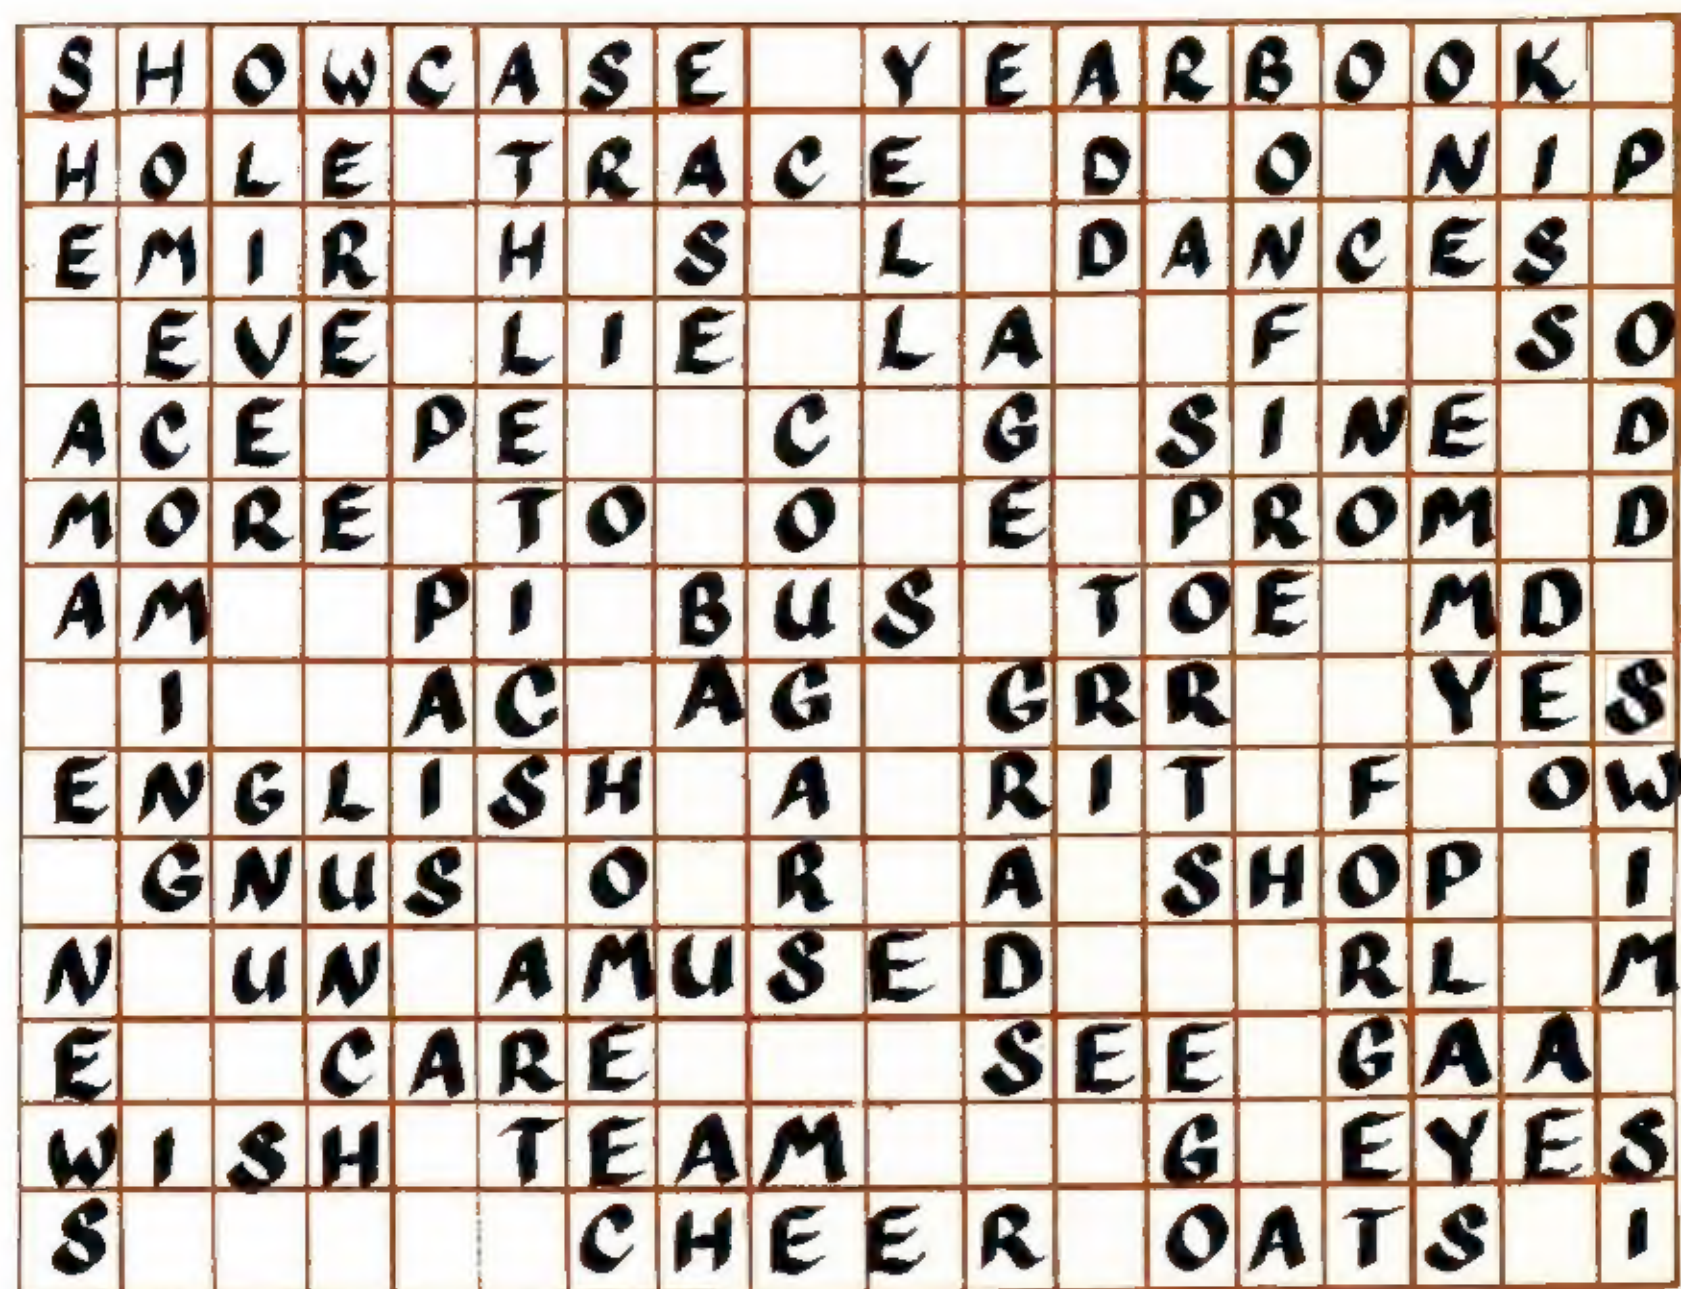 SHOWCASE YEARBOOK
HOLE TRACE D O NIP
EMIR H S L DANCES
EVE LIE LA F SO
ACE PE C G SINE D
MORE TO O E PROM D
AM PI BUS TOE MD
I AC AG GRR YES
ENGLISH A RIT F OW
GNUS O R A SHOP I
N UN AMUSED RL M
E CARE SEE GAA
WISH TEAM G EYES
S CHEER OATS I